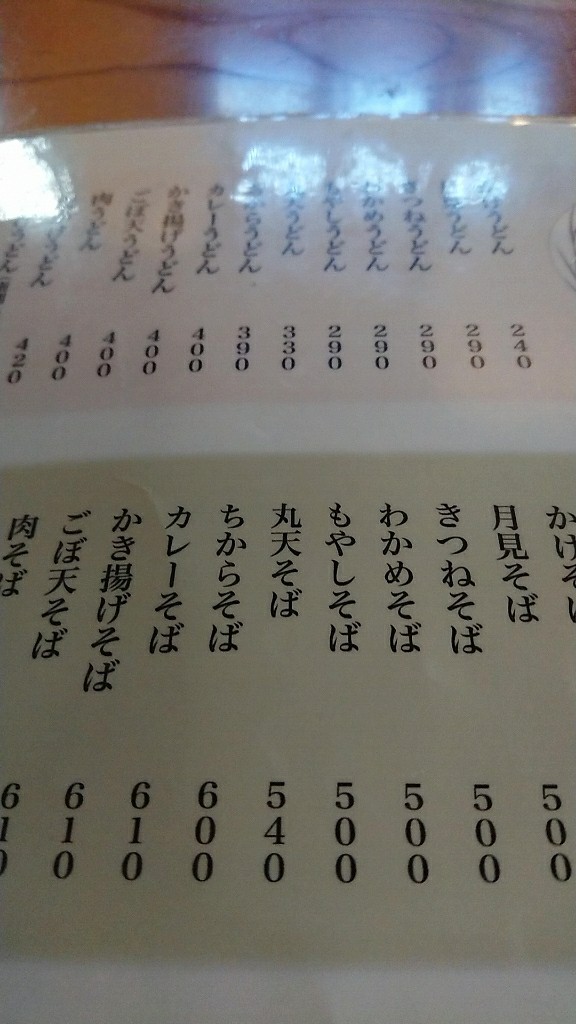 うどん 240
うどん 290
きつねうどん 290
わかめうどん 290
もやしうどん 290
丸天うどん 330
ちからうどん 390
カレーうどん 400
かき揚げうどん 400
ごぼ天うどん 400
肉うどん 400
うどん 420
うどん
かけそ
月見そば 500
きつねそば 500
わかめそば 500
もやしそば 500
丸天そば 540
ちからそば 600
カレーそば 610
かき揚げそば 610
ごぼ天そば 610
肉そば